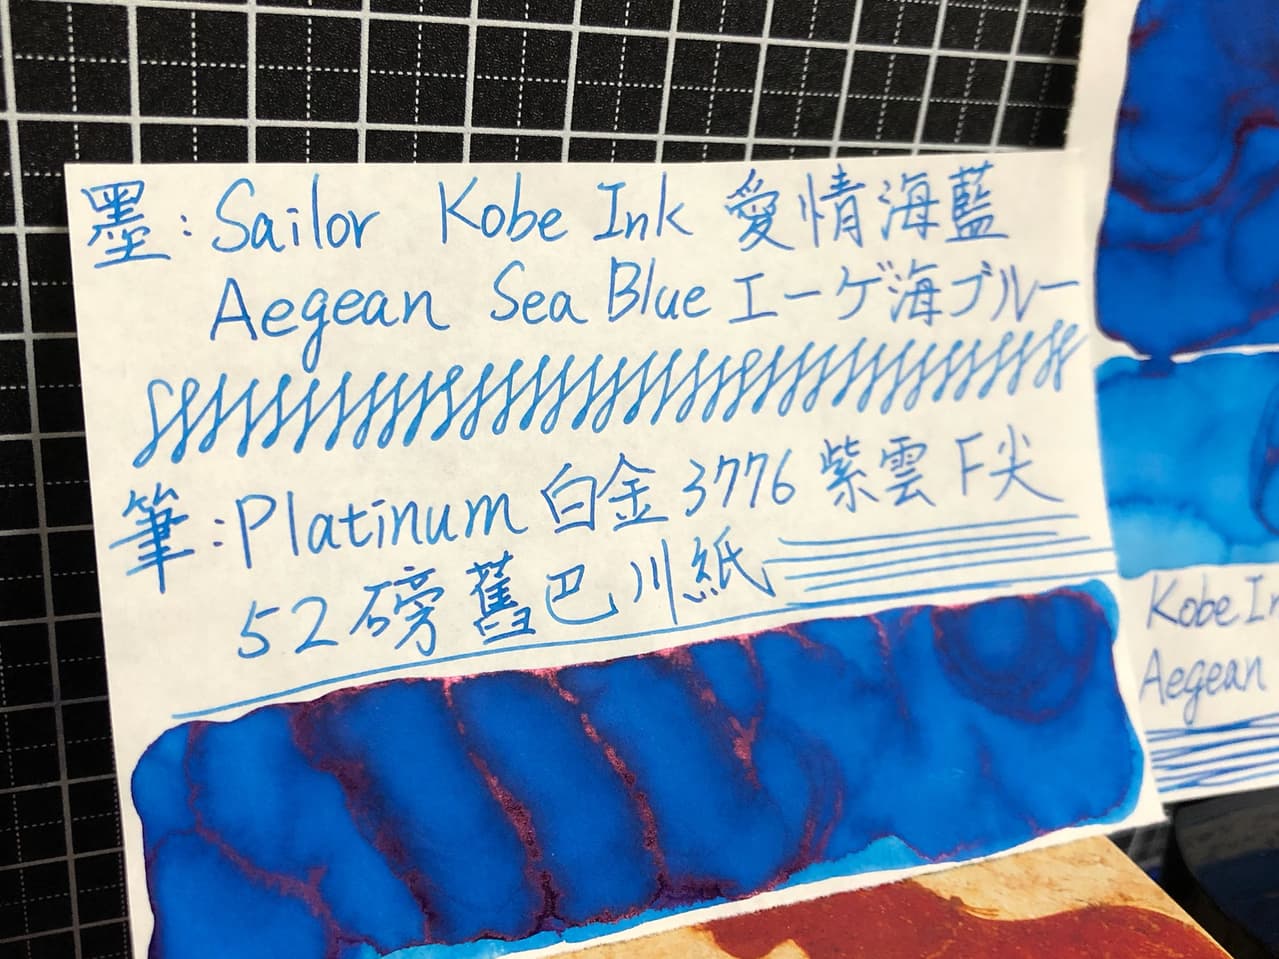 墨：Sailor Kobe Ink 愛情海藍
Aegean Sea Blue エーゲ海ブルー
筆：Platinum 白金 3776 紫雲 F尖
52磅 舊巴川紙
Kobe In
Aegean